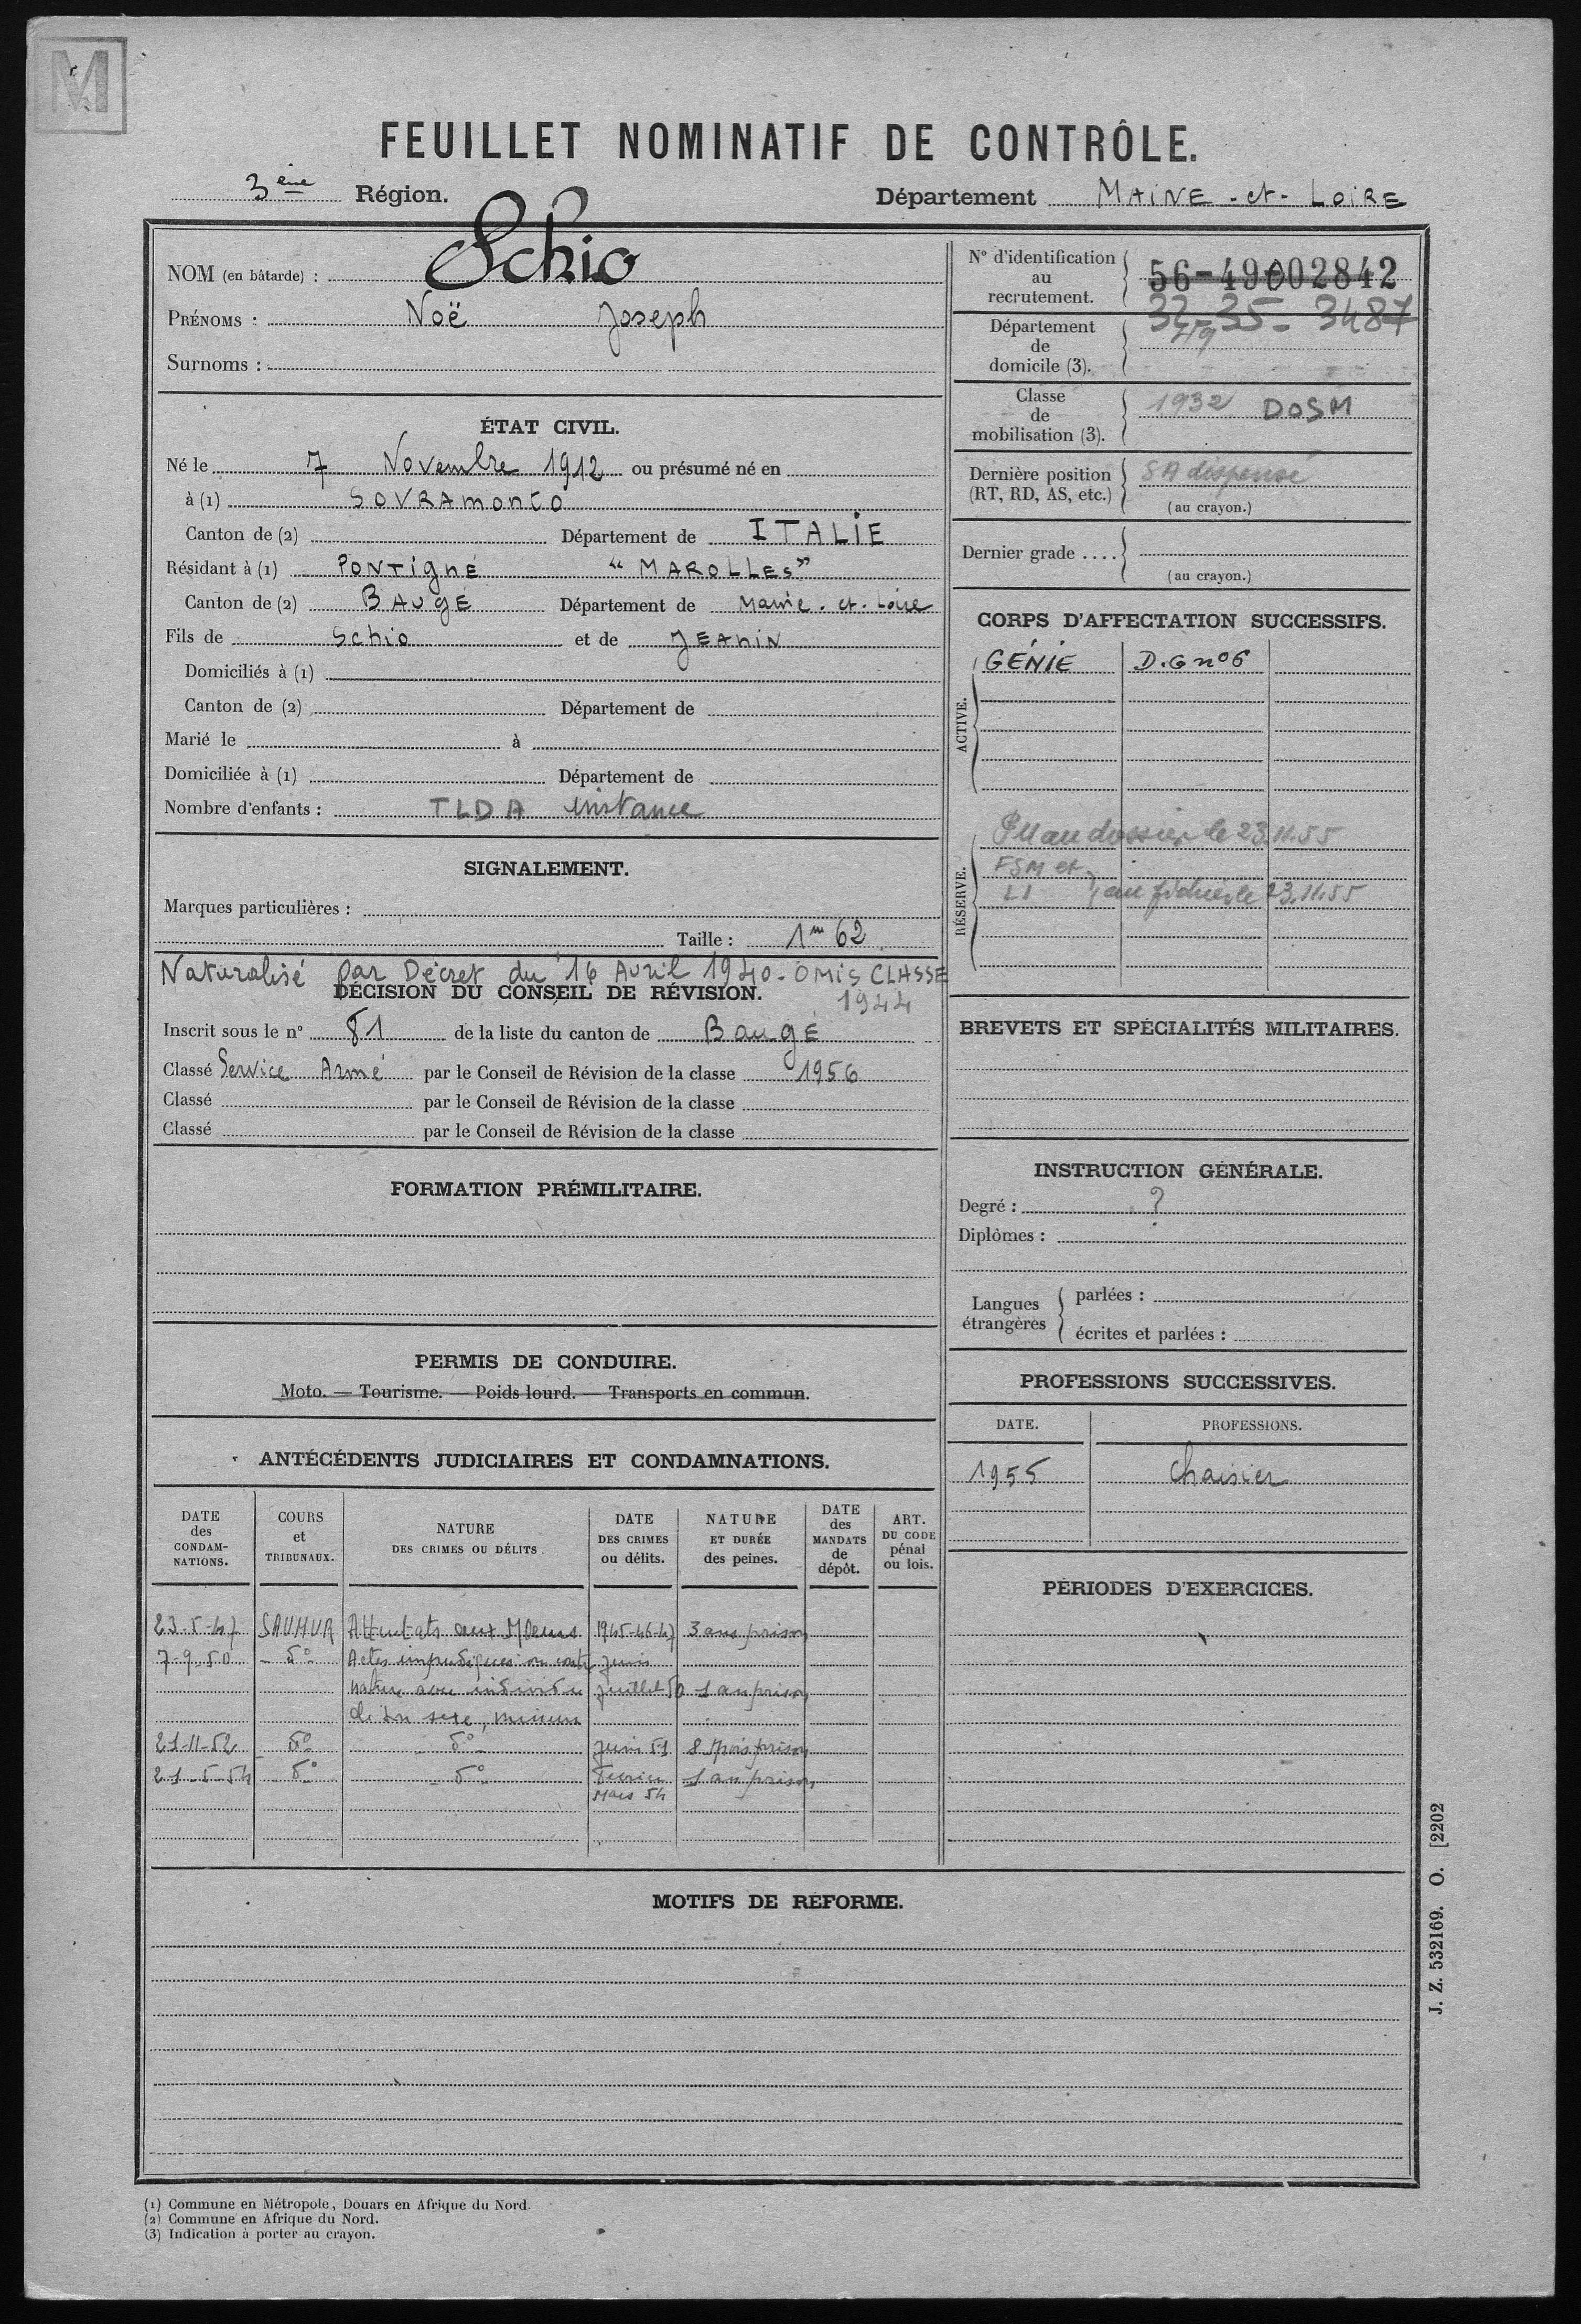 M
FEUILLET NOMINATIF DE CONTRÔLE.
3ème Région.
Département MAINE-et-LOIRE
NOM (en bâtarde) : Schio
PRÉNOMS : Noë Joseph
Surnoms :
ÉTAT CIVIL.
Né le 7 Novembre 1912 ou présumé né en
à (1) SOVRAMONTO
Canton de (2) Département de ITALIE
Résidant à (1) PONTIGNÉ "MAROLLES"
Canton de (2) BAUGÉ Département de Maine-et-Loire
Fils de Schio et de JEANIN
Domiciliés à (1)
Canton de (2) Département de
Marié le à
Domiciliée à (1) Département de
Nombre d'enfants : TLDA instance
SIGNALEMENT.
Marques particulières :
Taille : 1m 62
Naturalisé par Décret du 16 Avril 1940 - OMIS CLASSE
1944
DÉCISION DU CONSEIL DE RÉVISION.
Inscrit sous le n° 81 de la liste du canton de Baugé
Classé Service Armé par le Conseil de Révision de la classe 1956
Classé par le Conseil de Révision de la classe
Classé par le Conseil de Révision de la classe
FORMATION PRÉMILITAIRE.
PERMIS DE CONDUIRE.
Moto. — Tourisme. — Poids lourd. — Transports en commun.
ANTÉCÉDENTS JUDICIAIRES ET CONDAMNATIONS.
DATE des CONDAMNATIONS. COURS et TRIBUNAUX. NATURE DES CRIMES OU DÉLITS DATE DES CRIMES ou délits. NATURE ET DURÉE des peines. DATE des MANDATS de dépôt. ART. DU CODE pénal ou lois.
23-5-47 SAUMUR Attentats aux Mœurs 1945-46-47 3 ans prison
7-9-50 d° Actes impudiques ou contre Juin
nature avec individu Juillet 50 1 an prison
de son sexe, mineur
21-11-52 d° d° Juin 51 8 Mois prison
21-5-54 d° d° Fevrier 1 an prison
Mars 54
N° d'identification au recrutement. 56-49-002842
32-35-3487
Département de domicile (3). 49
Classe de mobilisation (3). 1932 DOSM
Dernière position (RT, RD, AS, etc.) SA dispensé
(au crayon.)
Dernier grade ....
(au crayon.)
CORPS D'AFFECTATION SUCCESSIFS.
ACTIVE.
GÉNIE D.G n°6
RÉSERVE.
PM au dossier le 23.11.55
FSM et
LI au fichier le 23.11.55
BREVETS ET SPÉCIALITÉS MILITAIRES.
INSTRUCTION GÉNÉRALE.
Degré : ?
Diplômes :
Langues étrangères
parlées :
écrites et parlées :
PROFESSIONS SUCCESSIVES.
DATE. PROFESSIONS.
1955 Chaisier
PÉRIODES D'EXERCICES.
MOTIFS DE RÉFORME.
J. Z. 532169. O. [2202
(1) Commune en Métropole, Douars en Afrique du Nord.
(2) Commune en Afrique du Nord.
(3) Indication à porter au crayon.